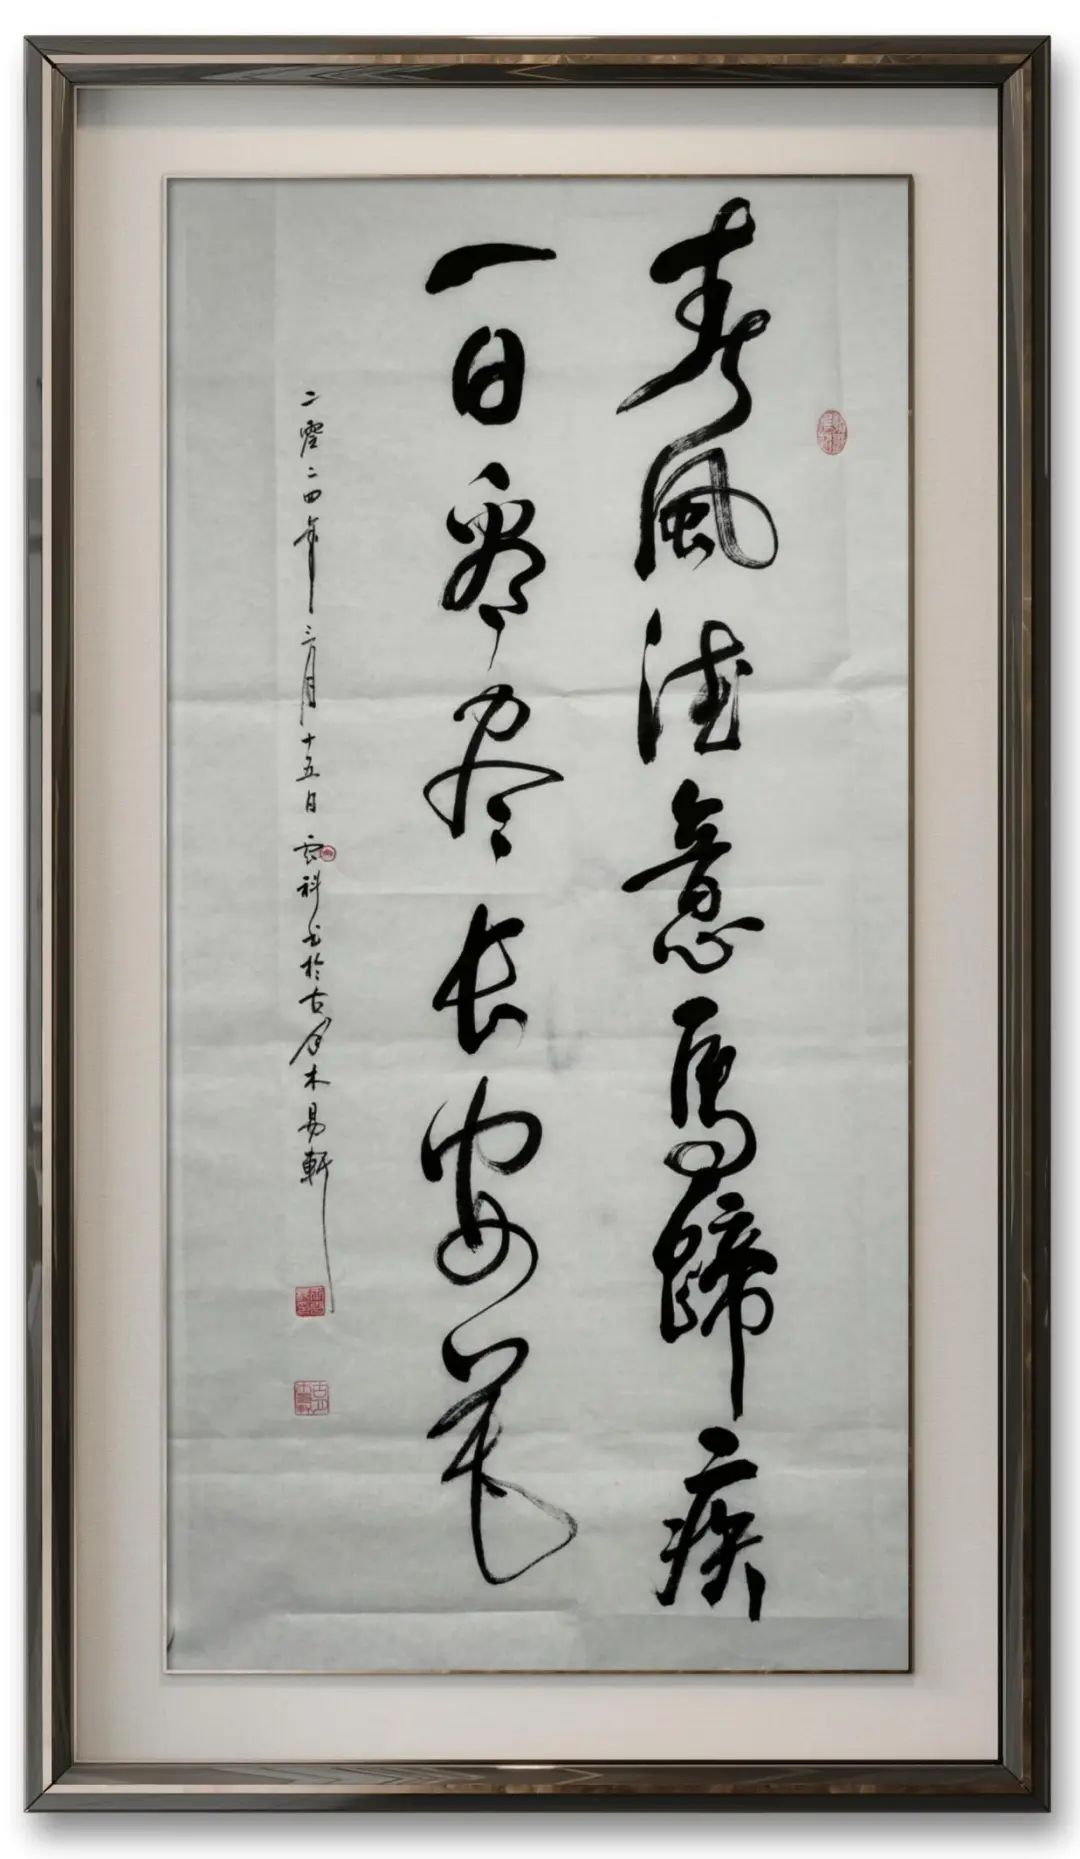 春風得意馬蹄疾
一日看尽长安花
二零二四年三月十五日科书於古木易軒